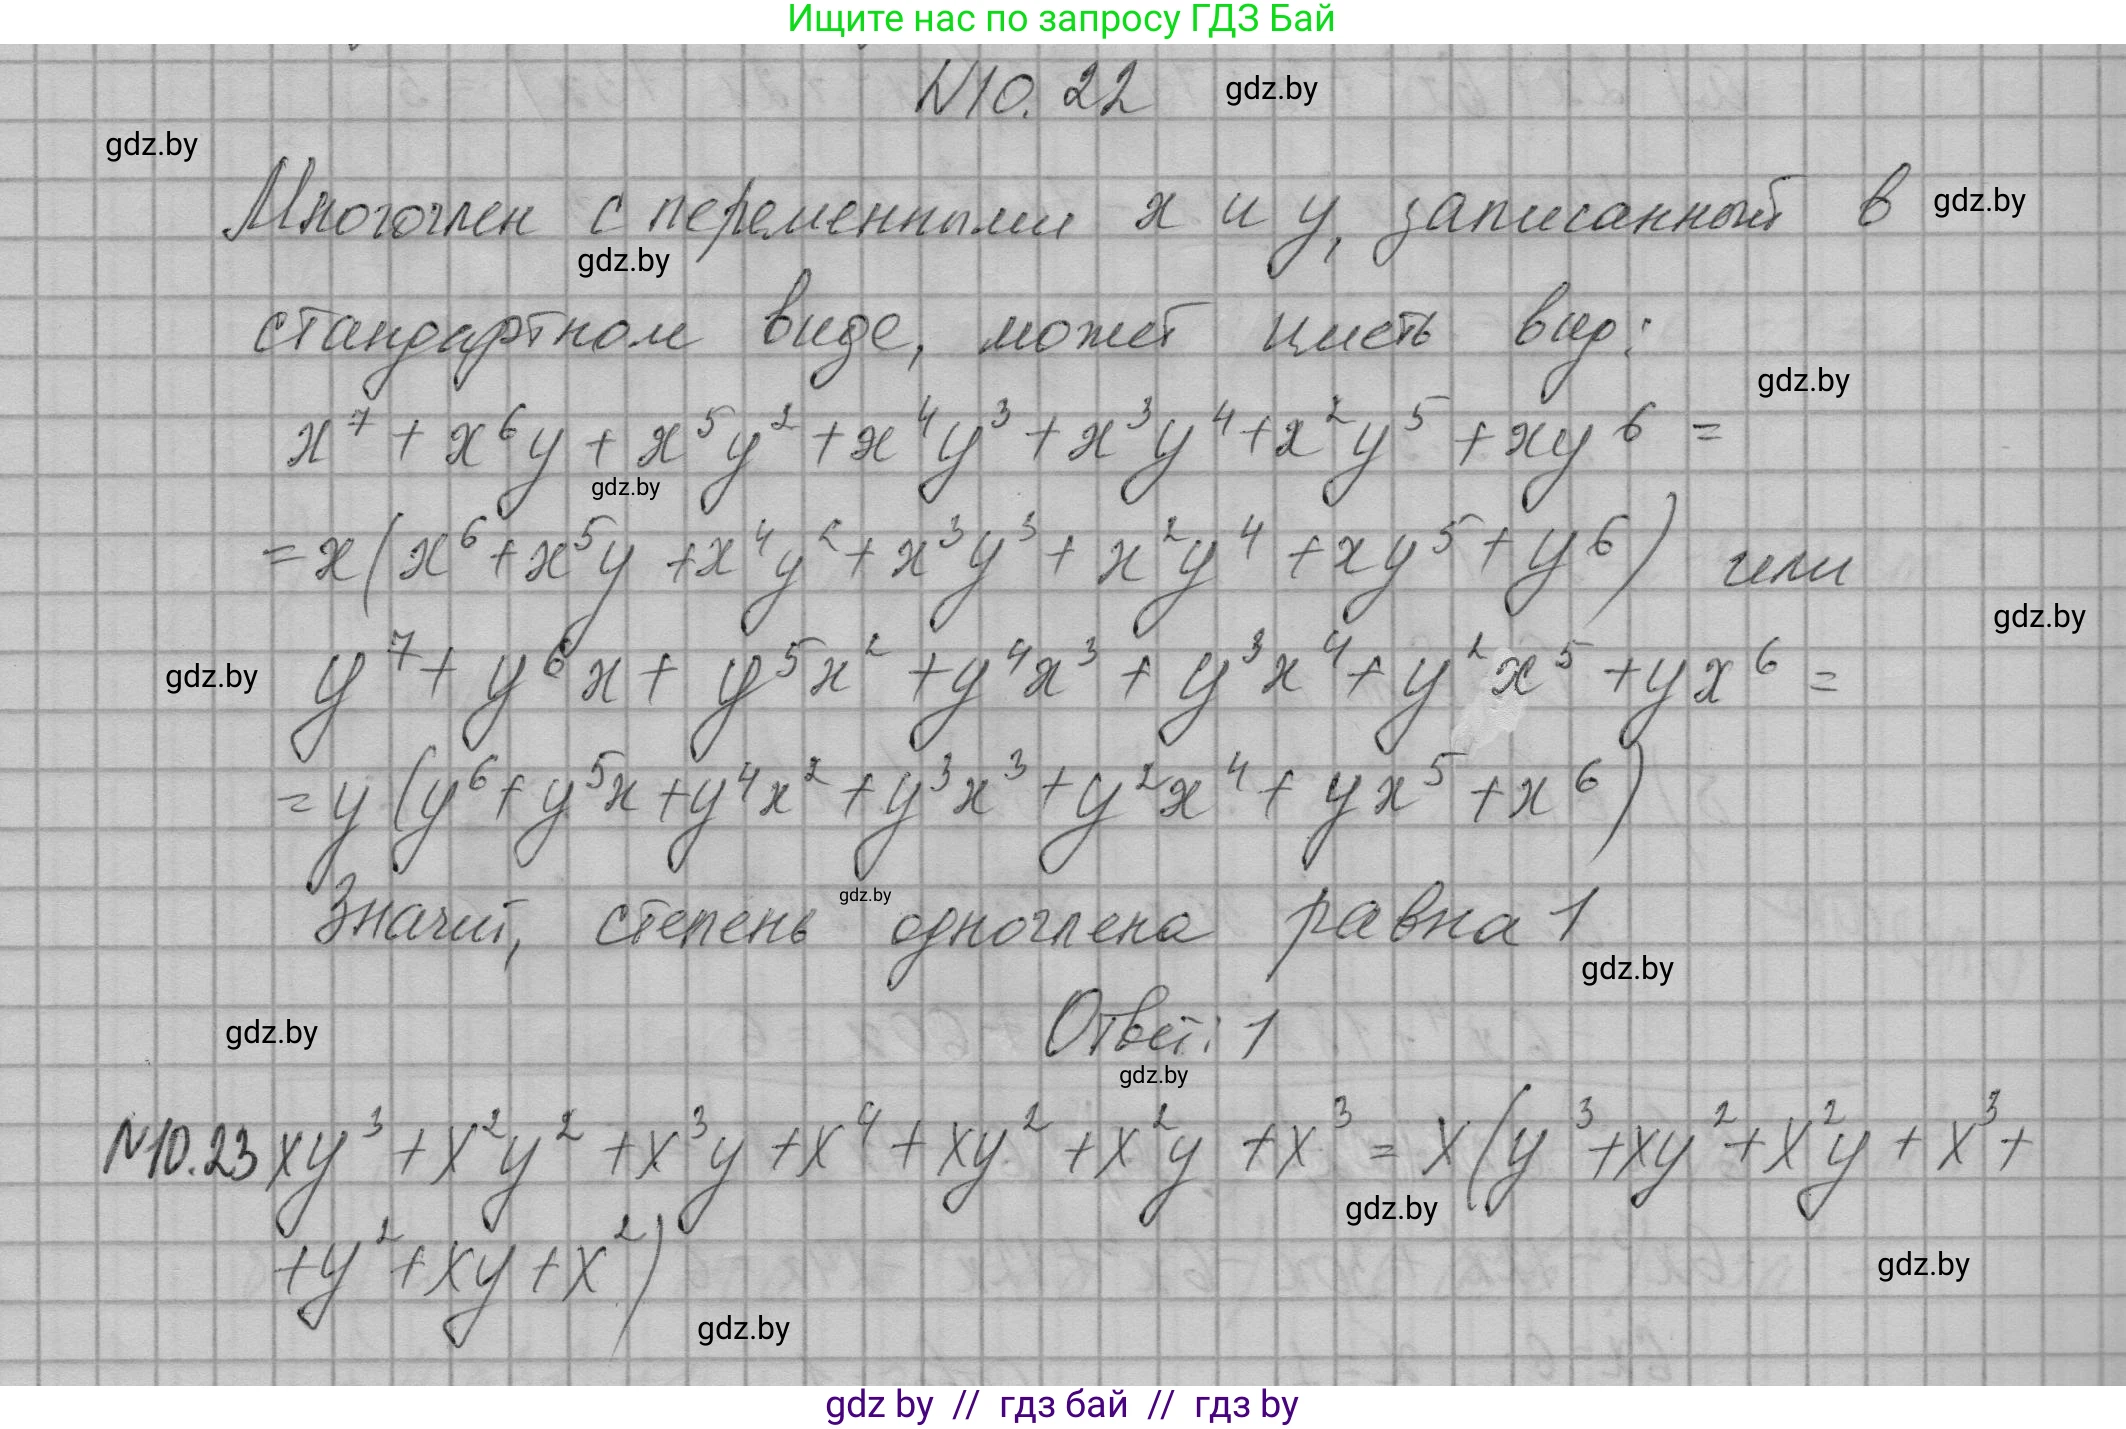 Ищите нас по запросу ГДЗ Бай
N10.22 gdz.by
gdz.by
Многочлен с переменными x и y, записанный в gdz.by
gdz.by
стандартном виде, может иметь вид:
gdz.by
x⁷ + x⁶y + x⁵y² + x⁴y³ + x³y⁴ + x²y⁵ + xy⁶ =
gdz.by
= x(x⁶ + x⁵y + x⁴y² + x³y³ + x²y⁴ + xy⁵ + y⁶) или
gdz.by
gdz.by y⁷ + y⁶x + y⁵x² + y⁴x³ + y³x⁴ + y²x⁵ + yx⁶ =
= y(y⁶ + y⁵x + y⁴x² + y³x³ + y²x⁴ + yx⁵ + x⁶)
gdz.by
Значит, степень одночлена равна 1
gdz.by
gdz.by Ответ: 1
gdz.by
N10.23 xy³ + x²y² + x³y + x⁴ + xy² + x²y + x³ = x(y³ + xy² + x²y + x³ +
gdz.by
+ y² + xy + x²)
gdz.by
gdz.by
gdz by // гдз бай // гдз by